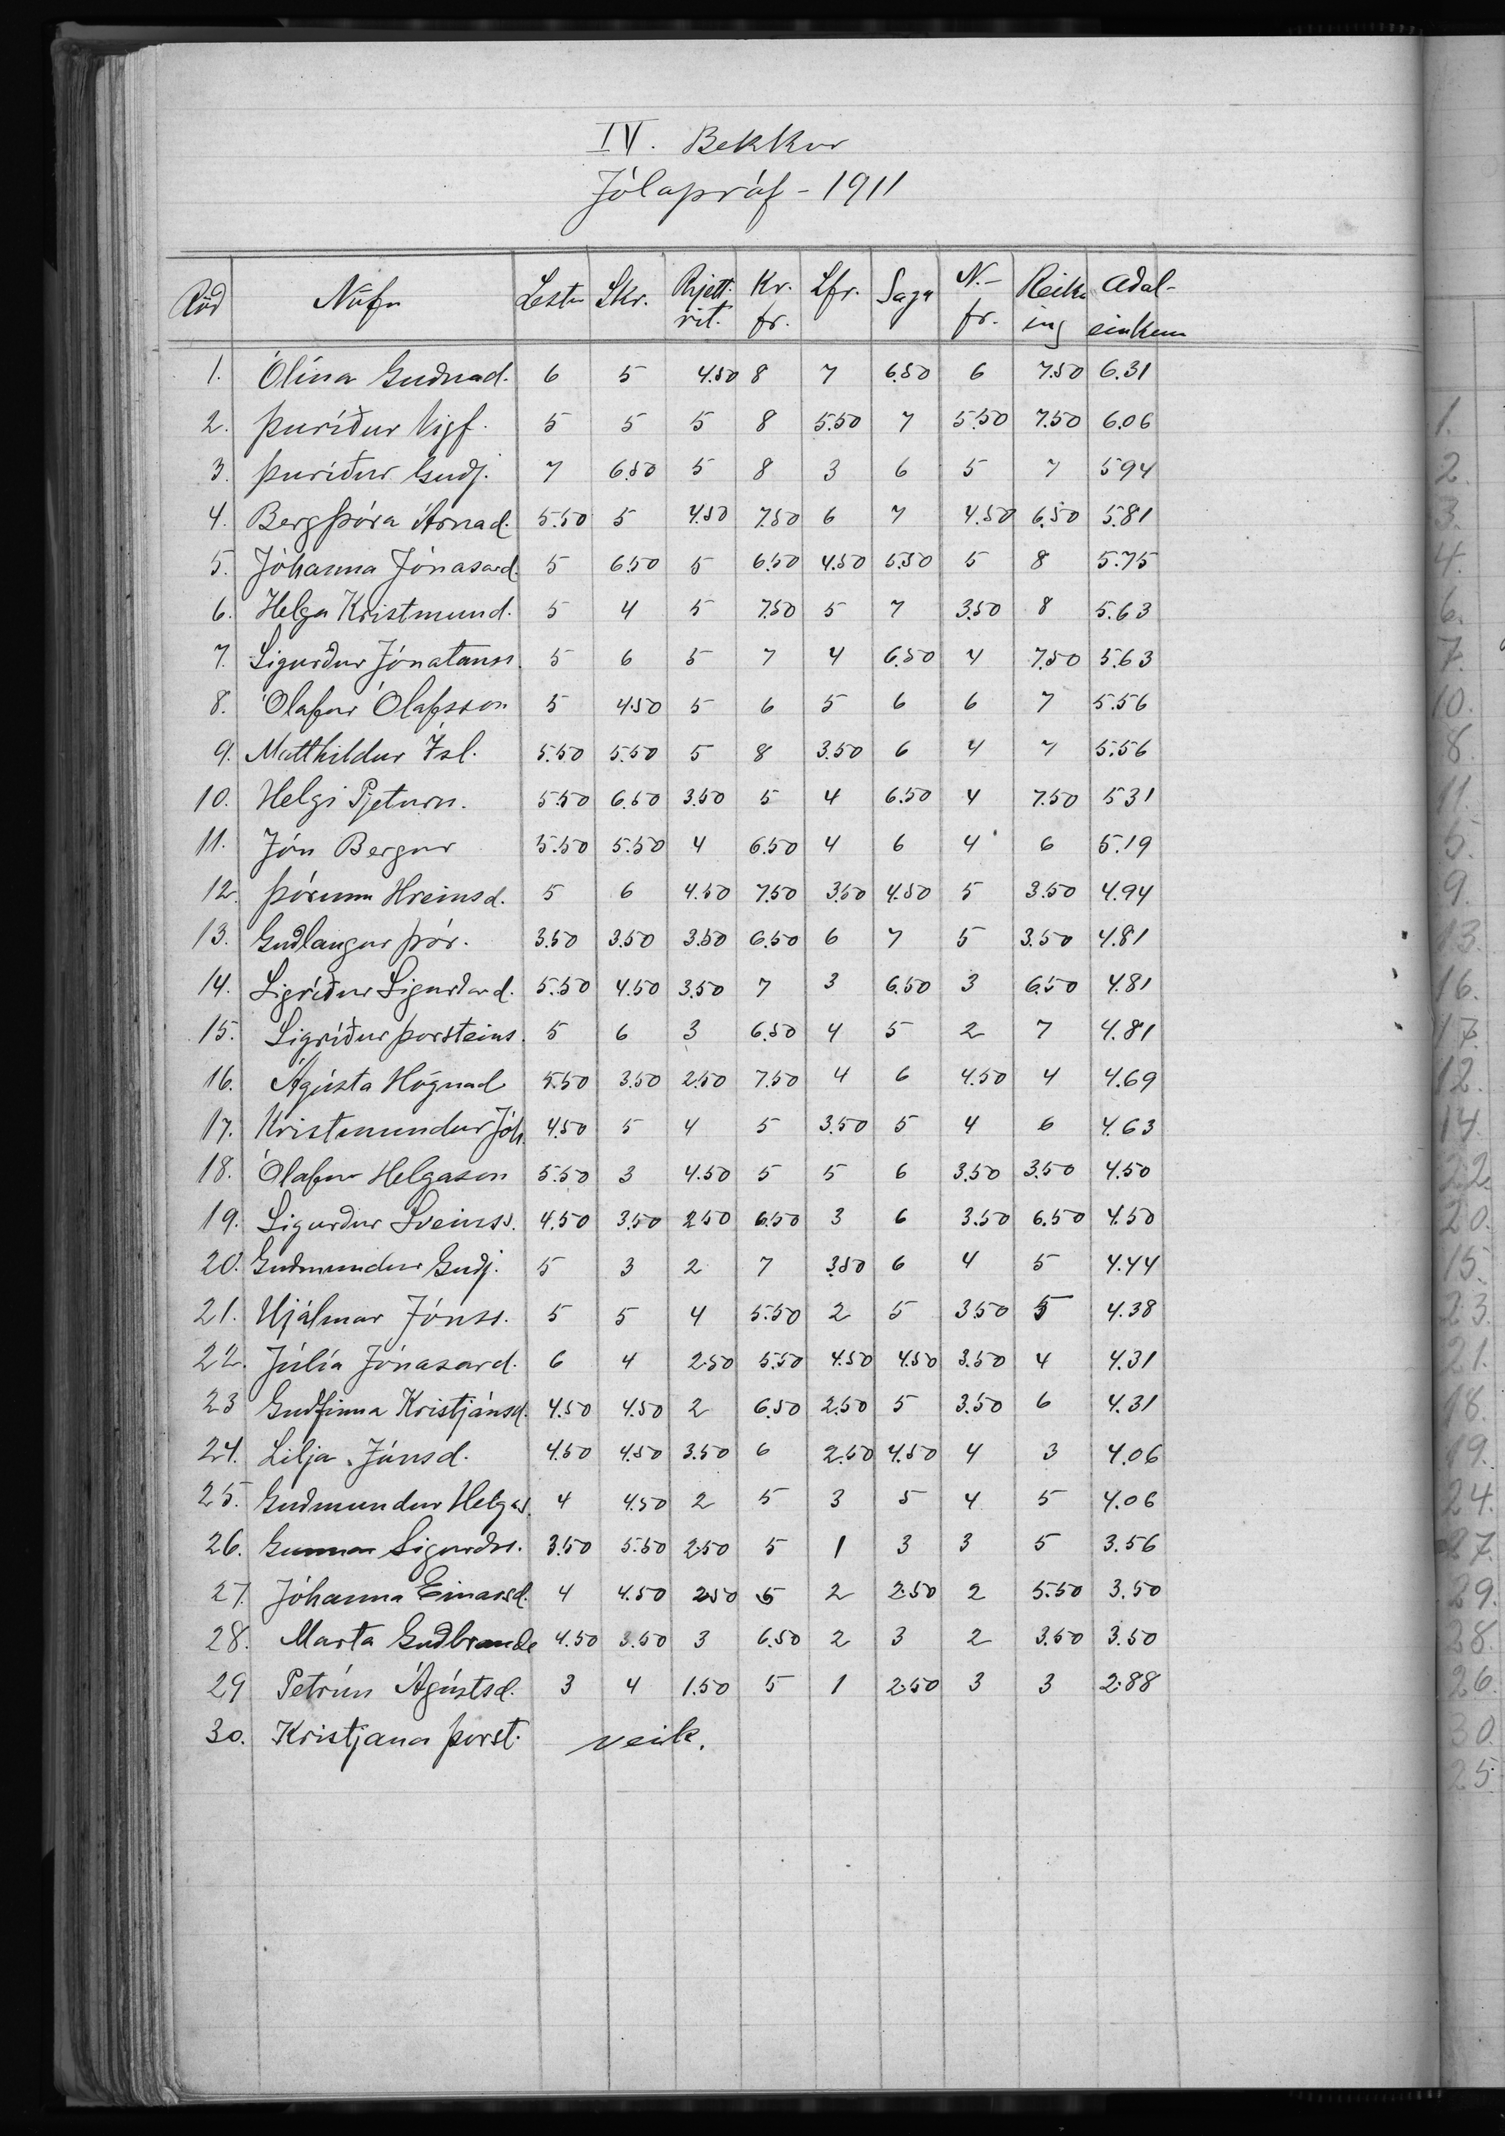 IV. Bekkur
Jólapróf - 1911
Röð Nöfn Lestr Skr. Rjett.rit. Kr.fr. Lfr. Saga N.-fr. Reikning Aðal-einkun
1. Ólína Guðnad. 6 5 4.50 8 7 6.50 6 7.50 6.31
2. Þuríður Vigf. 5 5 5 8 5.50 7 5.50 7.50 6.06
3. Þuríður Guðj. 7 6.50 5 8 3 6 5 7 5.94
4. Bergþóra Árnad. 5.50 5 4.50 7.50 6 7 4.50 6.50 5.81
5. Jóhanna Jónasard. 5 6.50 5 6.50 4.50 5.50 5 8 5.75
6. Helga Kristmund. 5 4 5 7.50 5 7 3.50 8 5.63
7. Sigurður Jónatanss. 5 6 5 7 4 6.50 4 7.50 5.63
8. Ólafur Ólafsson 5 4.50 5 6 5 6 6 7 5.56
9. Matthildur Ísl. 5.50 5.50 5 8 3.50 6 4 7 5.56
10. Helgi Pjeturs. 5.50 6.50 3.50 5 4 6.50 4 7.50 5.31
11. Jón Bergur 5.50 5.50 4 6.50 4 6 4 6 5.19
12. Þórunn Hreinsd. 5 6 4.50 7.50 3.50 4.50 5 3.50 4.94
13. Guðlaugur Þór. 3.50 3.50 3.50 6.50 6 7 5 3.50 4.81
14. Sigríður Sigurðard. 5.50 4.50 3.50 7 3 6.50 3 6.50 4.81
15. Sigríður Þorsteins. 5 6 3 6.50 4 5 2 7 4.81
16. Ágústa Högnad 5.50 3.50 2.50 7.50 4 6 4.50 4 4.69
17. Kristmundur Jóh. 4.50 5 4 5 3.50 5 4 6 4.63
18. Ólafur Helgason 5.50 3 4.50 5 5 6 3.50 3.50 4.50
19. Sigurður Sveinss. 4.50 3.50 2.50 6.50 3 6 3.50 6.50 4.50
20. Guðmundur Guðj. 5 3 2 7 3.50 6 4 5 4.44
21. Hjálmar Jónss. 5 5 4 5.50 2 5 3.50 5 4.38
22. Júlía Jónasard. 6 4 2.50 5.50 4.50 4.50 3.50 4 4.31
23 Guðfinna Kristjánsd. 4.50 4.50 2 6.50 2.50 5 3.50 6 4.31
24. Lilja Jónsd. 4.50 4.50 3.50 6 2.50 4.50 4 3 4.06
25. Guðmundur Helgas. 4 4.50 2 5 3 5 4 5 4.06
26. Gunnar Sigurðs. 3.50 5.50 2.50 5 1 3 3 5 3.56
27. Jóhanna Einarsd. 4 4.50 2.50 5 2 2.50 2 5.50 3.50
28. Marta Guðbrands 4.50 3.50 3 6.50 2 3 2 3.50 3.50
29 Petrún Ágústsd. 3 4 1.50 5 1 2.50 3 3 2.88
30. Kristjana Þorst. veik.
1.
2.
3.
4.
6.
7.
10.
8.
11.
5.
9.
13.
16.
17.
12.
14.
22.
20.
15.
23.
21.
18.
19.
24.
27.
29.
28.
26.
30.
25.